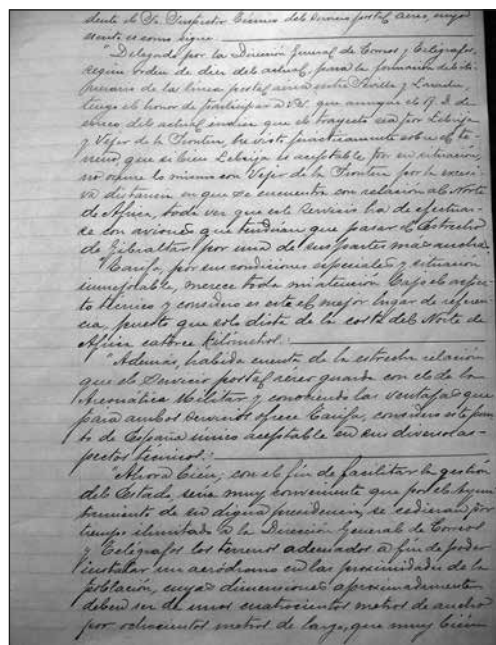 dente el Sr. Inspector técnico del Servicio postal aéreo, cuyo
escrito es como sigue:
"Delegado por la Dirección General de Correos y Telégrafos,
según orden de diez del actual, para la formación del iti-
nerario de la línea postal aérea entre Sevilla y Larache,
tengo el honor de participar a V.S. que aunque el R. D. de
enero del actual indica que el trayecto sea por Lebrija
y Vejer de la Frontera, he visto prácticamente sobre el te-
rreno, que si bien Lebrija es aceptable por su situación,
no ocurre lo mismo con Vejer de la Frontera por la excesi-
va distancia en que se encuentra con relación al Norte
de Africa, toda vez que este servicio ha de efectuar-
se con aviones que tendrían que pasar el Estrecho
de Gibraltar por una de sus partes mas anchas.
"Tarifa, por sus condiciones especiales y situación
inmejorable, merece toda mi atención bajo el aspec-
to técnico y considero es este el mejor lugar de referen-
cia, puesto que solo dista de la costa del Norte de
Africa catorce kilómetros.
"Además, habida cuenta de la estrecha relación
que el Servicio postal aéreo guarda con el de la
Aeronáutica Militar y conociendo las ventajas que
para ambos servicios ofrece Tarifa, considero este pun-
to de España único aceptable en sus diversos as-
pectos técnicos.
"Ahora bién; con el fin de facilitar la gestión
del Estado, sería muy conveniente que por el Ayun-
tamiento de su digna presidencia, se cedieran por
tiempo ilimitado a la Dirección General de Correos
y Telégrafos los terrenos adecuados a fin de poder
instalar un aeródromo en las proximidades de la
población, cuyas dimensiones aproximadamente
deben ser de unos cuatrocientos metros de ancho
por ochocientos metros de largo, que muy bién